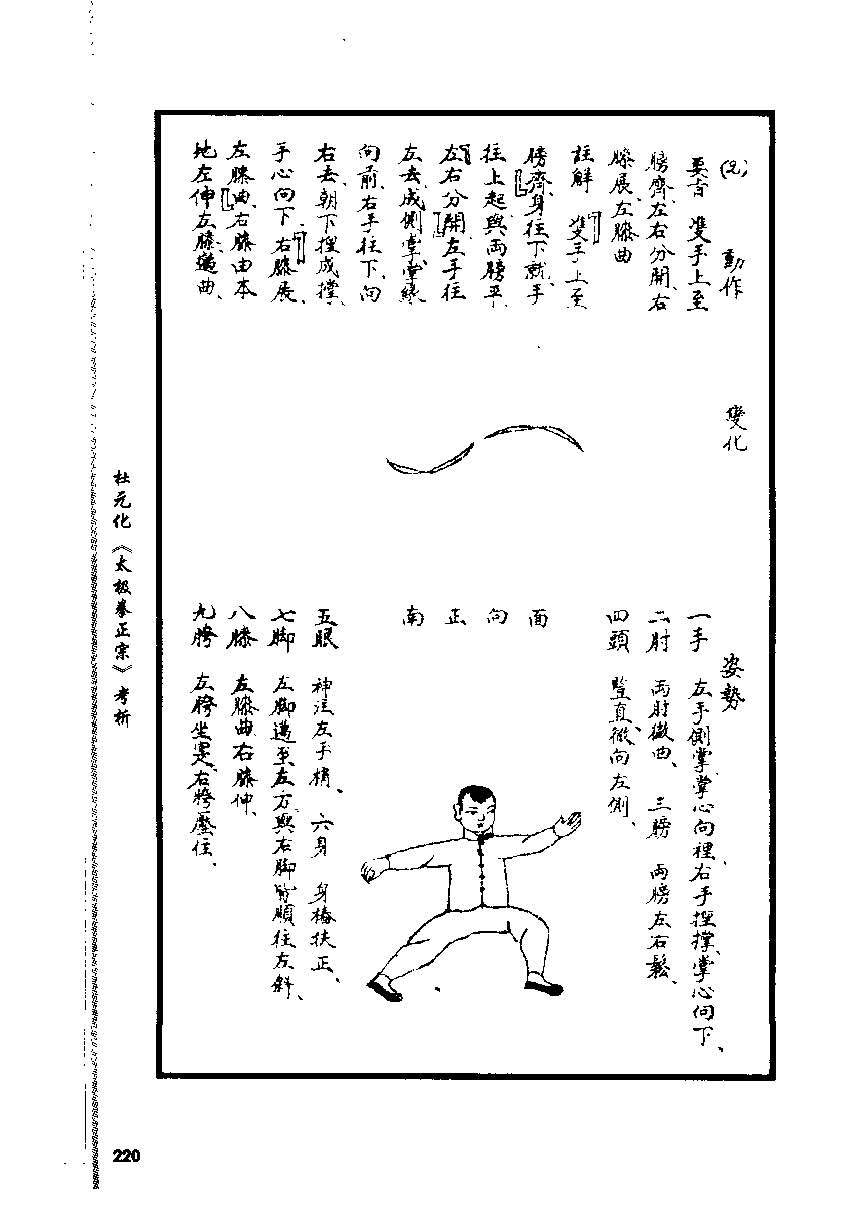 (2) 動作
要言 雙手上至
膀齊、左右分開、右
膝展、左膝曲
註解 『雙手上至
膀齊』身往下就、手
往上起、與兩膀平、
『左右分開』左手往
左去、成側掌、掌緣
向前、右手往下、向
右去、朝下捏成撑、
手心向下、『右膝展、
左膝曲』右膝由本
地左伸、左膝邁曲、
變化
姿勢
一手 左手側掌、掌心向裡、右手捏撑、掌心向下、
二肘 兩肘微曲、 三膀 兩膀左右鬆、
四頭 豎直、微向左側、
面向正南
五眼 神注左手梢、 六身 身樁扶正、
七脚 左脚邁至左方、與右脚皆順往左斜、
八膝 左膝曲、右膝伸、
九胯 左胯坐定、右胯壓住、
杜元化《太极拳正宗》考析
220